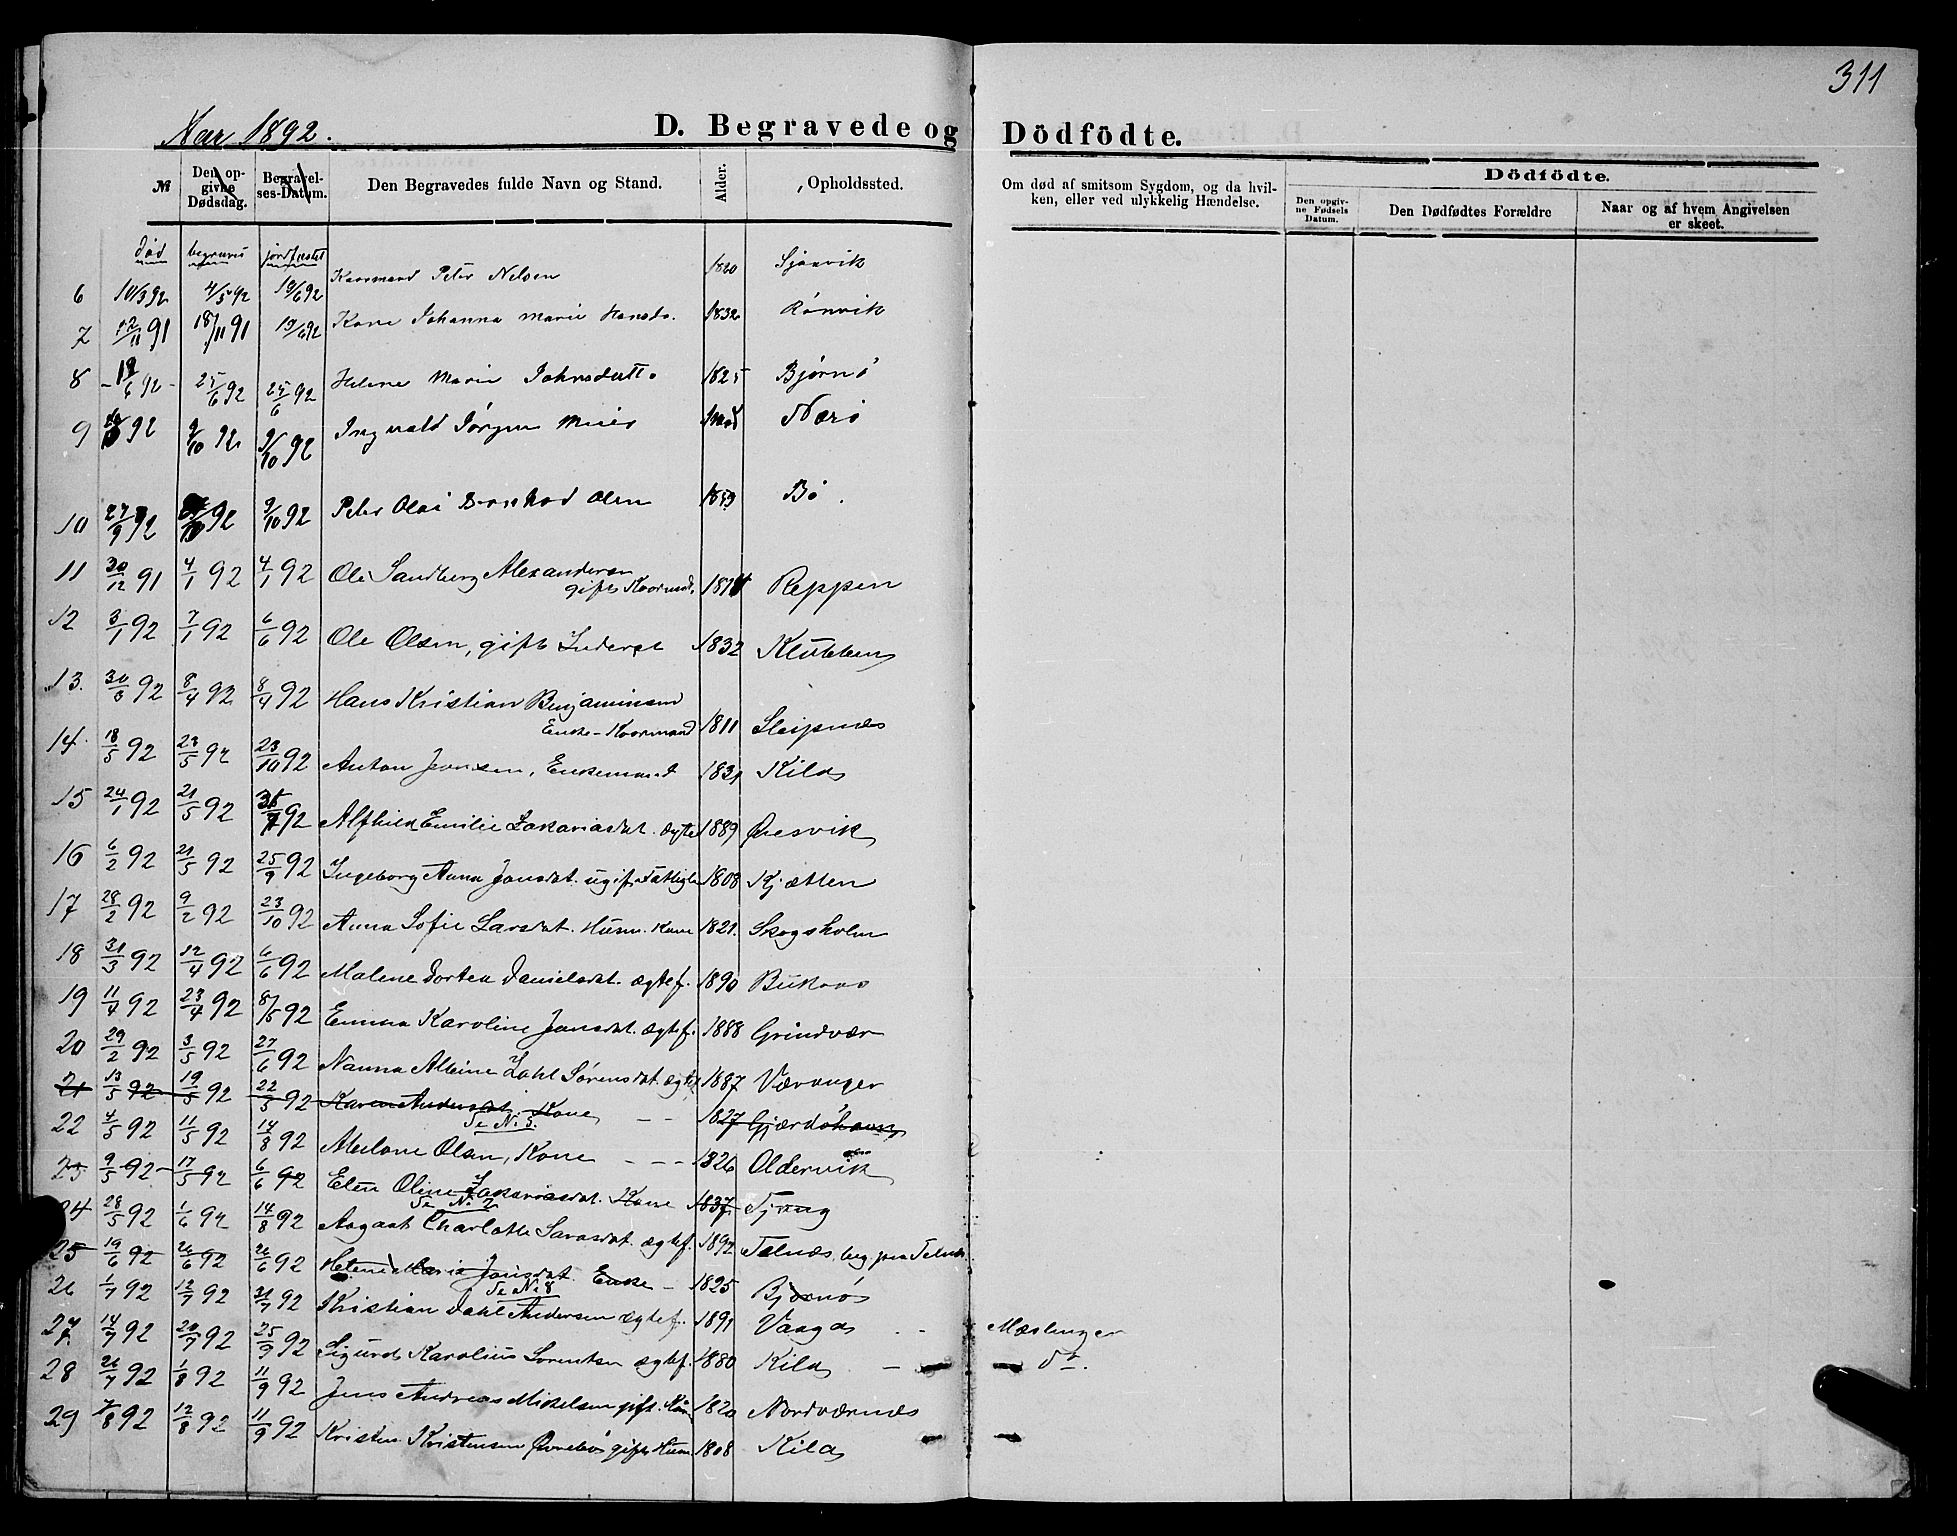 311
Aar 1892.
D. Begravede og Dödfödte.
№ Den opgivne Dødsdag. Begravelses-Datum. Den Begravedes fulde Navn og Stand. Alder. Opholdssted. Om død af smitsom Sygdom, og da hvilken, eller ved ulykkelig Hændelse. Dödfödte. Den opgivne Fødsels Datum. Den Dødfødtes Forældre Naar og af hvem Angivelsen er skeet.
død begravet jordfæstet
6 10/3 92 4/5 92 19/6 92 Kaarmand Peter Nelsen 1820 Sjönvik
7 12/11 91 18/11 91 19/6 92 Kone Johanna Marie Hansd. 1832 Rönvik
8 18/6 92 25/6 92 25/6 92 Helene Marie Johnsdatt. 1825 Bjørnö
9 92 9/10 92 9/10 92 Ingvald Jörgen Nærö
10 27/9 92 92 9/10 92 Peter Olai Olsen Bö.
11 30/12 91 4/1 92 4/1 92 Ole Sandberg Alexandersen
gift Kaarmd. Reppen
12 3/1 92 7/1 92 6/6 92 Ole Olsen, gift Inderst 1832 Klubben
13. 30/3 92 8/4 92 8/4 92 Hans Kristian Benjaminsen
Enke-Kaarmand 1811 Sleipnæs
14. 18/5 92 23/5 92 23/10 92 Anton Jensen, Enkemand 1831 Kila
15 24/1 92 21/5 92 92 Alfhild Emilie Zakariasdat. ægtef 1889 Øresvik
16 6/2 92 21/5 92 25/9 92 Ingeborg Anna Jonsdat. ugift Fattigl. 1808 Kjætten
17 28/2 92 9/2 92 23/10 92 Anna Sofie Larsdat. Husm. Kone 1821. Skogsholm
18 31/3 92 12/4 92 6/6 92 Malene Dortea Danielsdat. ægtef. 1890 Bukaas
19 11/4 92 23/4 92 8/5 92 Emma Karoline Jensdat. ægtef. 1888 Grindvær
20 29/2 92 3/5 92 27/6 92 Nanna Albine Zahl Sörensdat. ægtef 1887 Væranger
21 13/5 92 19/5 92 22/5 92 Karen Andersdat. Kone - - 1827 Gjærdöhaug
Se N. 5.
22 4/5 92 11/5 92 14/8 92 Abelone Olsen, Kone - - - 1826 Oldervik
23 9/5 92 17/5 92 6/6 92 Elen Oline Zakariasdat. Kone 1837 Tjong
Se N. 2
24 28/5 92 1/6 92 14/8 92 Aagaat Charlotte Larsdat. ægtef. 1892 Telnæs, beg. paa Telnæs
25 19/6 92 26/6 92 26/6 92 Helene Marie Jonsdat. Enke - 1825 Bjørnö
Se N. 8
26 1/7 92 12/7 92 31/7 92 Kristian Dahl Andersen ægtef. 1891 Vaaga - Mæslinger
27 14/7 92 20/7 92 25/9 92 Sigurd Karolius Lorentsen ægtef. 1880 Kila - do.
28 26/7 92 1/8 92 11/9 92 Jens Andreas Mikelsen gift. Kaarm. 1820 Nordværnes
29 7/8 92 12/8 92 11/9 92 Kristen Kristensen Øvrebö gift Husm. 1808 Kila